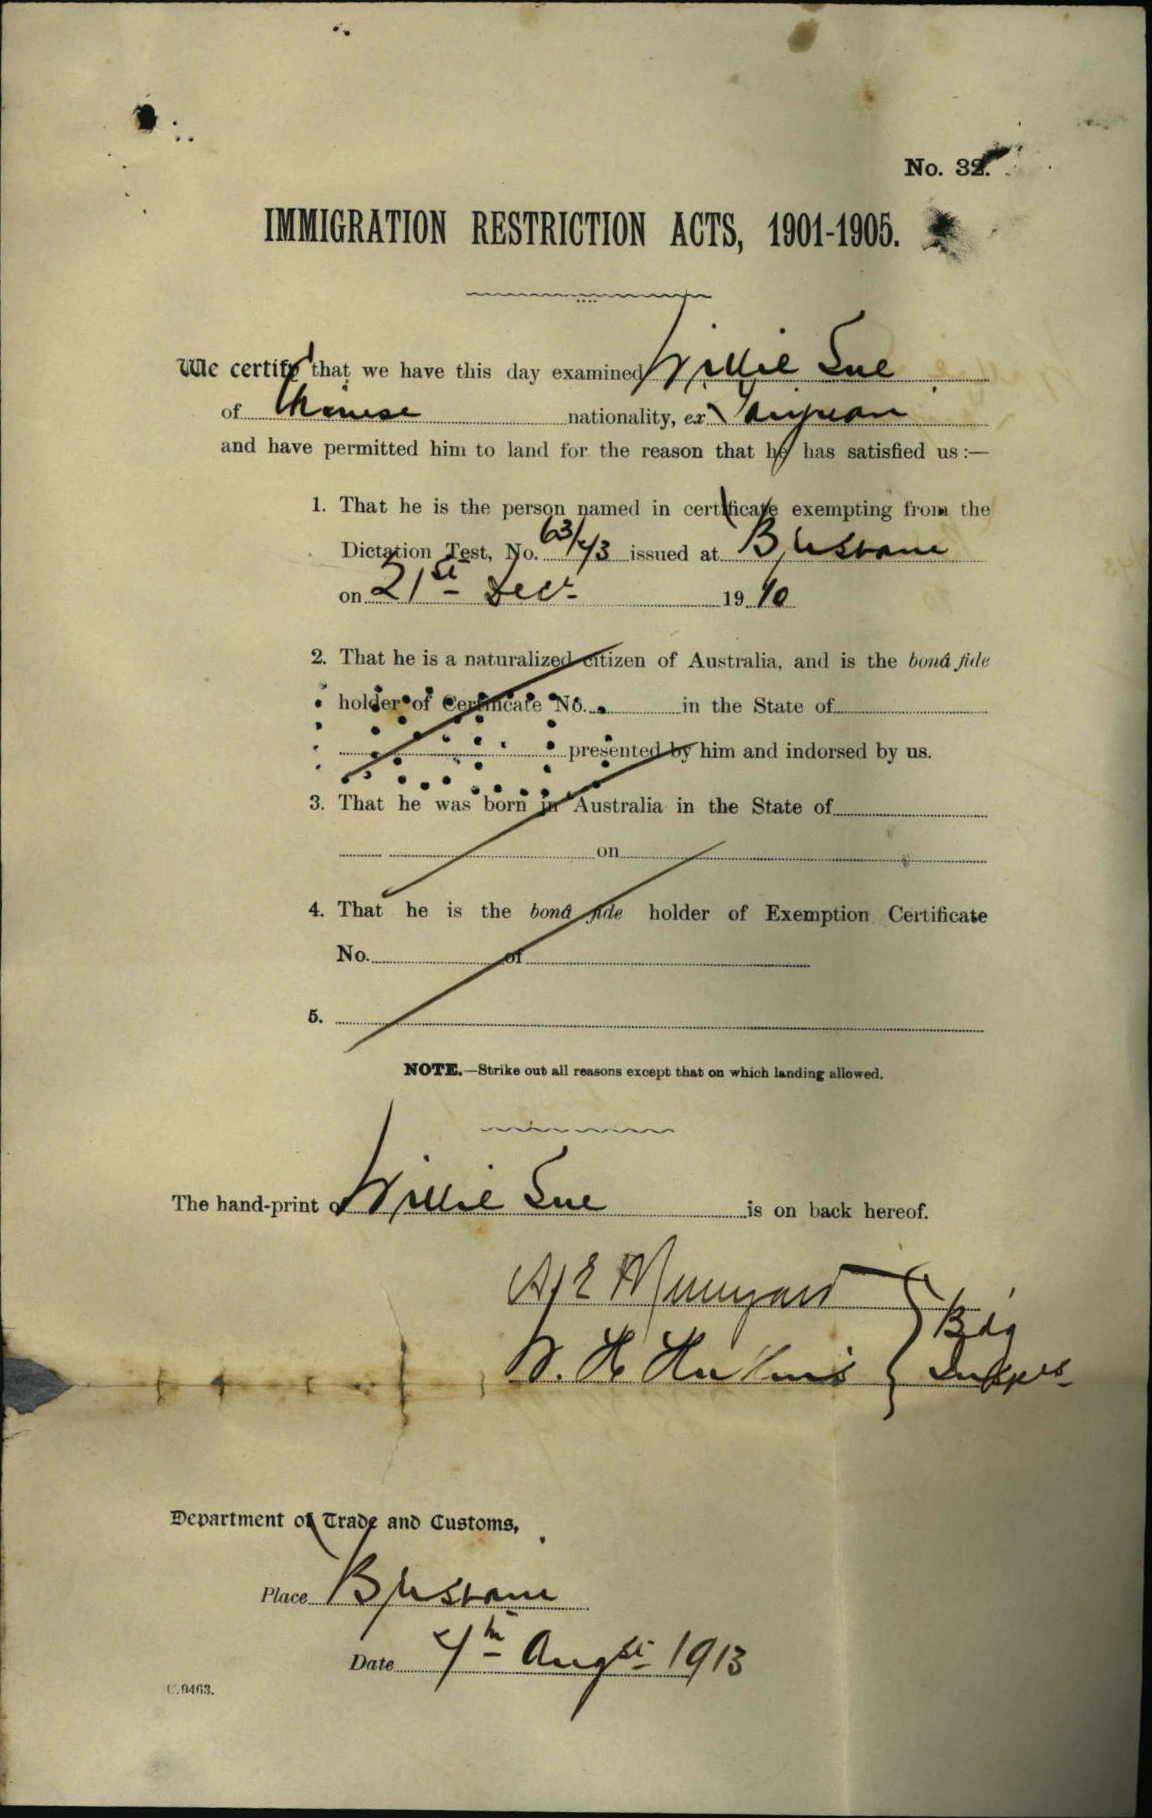 No. 32.
IMMIGRATION RESTRICTION ACTS, 1901-1905.
We certify that we have this day examined Willie Sue
of Chinese nationality, ex Taiyuan
and have permitted him to land for the reason that he has satisfied us :—
1. That he is the person named in certificate exempting from the
Dictation Test, No. 63/43 issued at Brisbane
on 21st Decr 1910
2. That he is a naturalized citizen of Australia, and is the bonâ fide
holder of Certificate No. in the State of
presented by him and indorsed by us.
3. That he was born in Australia in the State of
on
4. That he is the bonâ fide holder of Exemption Certificate
No. of
5.
NOTE.—Strike out all reasons except that on which landing allowed.
The hand-print of Willie Sue is on back hereof.
Bdg
W. H. Insprs
Department of Trade and Customs,
Place Brisbane
Date 4th Augst 1913
C.9463.